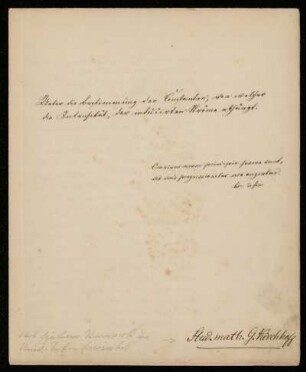 Ueber die Bestimmung der Constanten, von welcher
die Intensität, der inducirten Ströme abhängt.
Omnium rerum principia parva sunt,
sed suis progressionibus usa augentur.
Stud. math. G. Kirchhoff